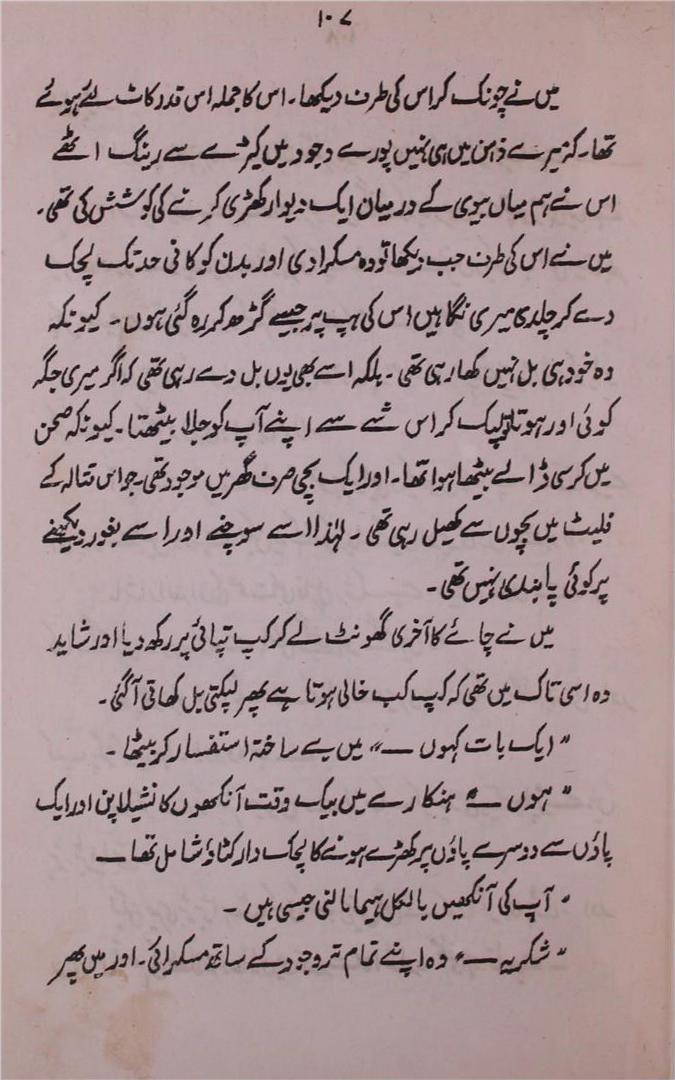 ۱۰۷
میں نے چونک کر اس کی طرف دیکھا۔ اس کا جملہ اس قدر کاٹ لئے ہوئے
تھا۔ کہ میرے ذہن میں ہی نہیں پورے وجود میں کیڑے سے رینگ اٹھے
اس نے ہم میاں بیوی کے درمیان ایک دیوار کھڑی کرنے کی کوشش کی تھی۔
میں نے اس کی طرف جب دیکھا تو وہ مسکرا دی اور بدن کو کافی حد تک لچک
دے کر چلدی میری نگاہیں اس کی ہپ پر جیسے گڑھ کر رہ گئی ہوں۔ کیونکہ
وہ خود ہی بل نہیں کھا رہی تھی۔ بلکہ اسے بھی یوں بل دے رہی تھی کہ اگر میری جگہ
کوئی اور ہوتا تو لپک کر اس شے سے اپنے آپ کو جلا بیٹھتا۔ کیونکہ صحن
میں کرسی ڈالے بیٹھا ہوا تھا۔ اور ایک بچی صرف گھر میں موجود تھی۔ جو اس قتالہ کے
فلیٹ میں بچوں سے کھیل رہی تھی۔ لہٰذا اسے سوچنے اور اسے بغور دیکھنے
پر کوئی پابندی نہیں تھی۔
میں نے چائے کا آخری گھونٹ لے کر کپ تپائی پر رکھ دیا اور شاید
وہ اسی تاک میں تھی کہ کپ کب خالی ہوتا ہے پھر لپکتی بل کھاتی آ گئی۔
"ایک بات کہوں ــــ" میں بے ساختہ استفسار کر بیٹھا۔
"ہوں ــــ" ہنکارے میں بیک وقت آنکھوں کا نشیلا پن اور ایک
پاؤں سے دوسرے پاؤں پر کھڑے ہونے کا لچک دار کٹاؤ شامل تھا ــــ
"آپ کی آنکھیں بالکل ہیما مالنی جیسی ہیں۔
"شکریہ ــــ" وہ اپنے تمام تر وجود کے ساتھ مسکرائی۔ اور میں پھر